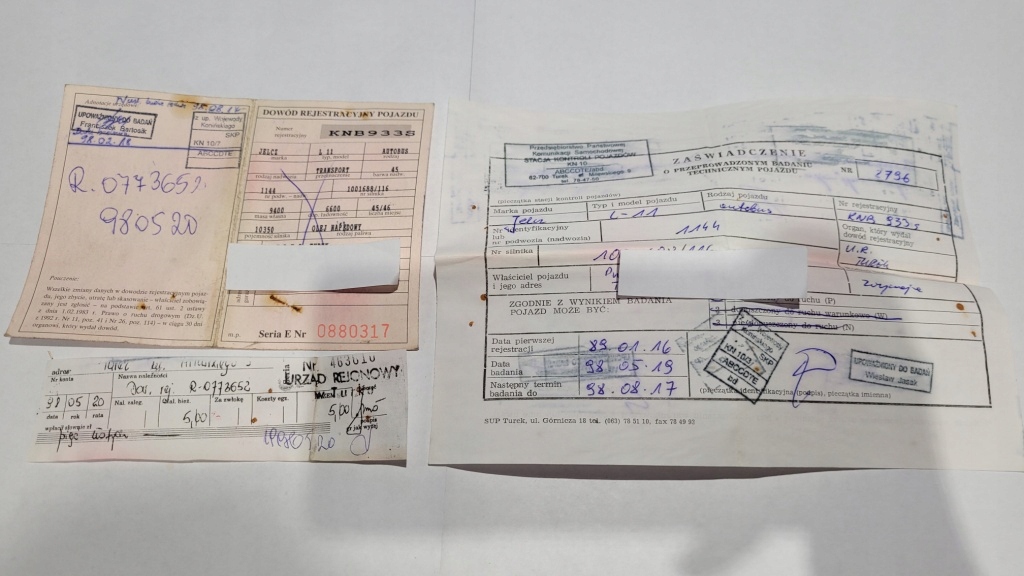 Adnotacje urzędowe
98.08.17
UPOWAŻNIONY DO BADAŃ
Franciszek Bartosik
98.02.18
z up. Wojewody
Konińskiego
SKP
KN 10/
ABCCOTE
R. 0773652
980520
Pouczenie:
Wszelkie zmiany danych w dowodzie rejestracyjnym pojaz-
du, jego zbycie, utratę lub skasowanie - właściciel zobowią-
zany jest zgłosić - na podstawie art. 61 ust. 2 ustawy
z dnia 1.02.1983 r. Prawo o ruchu drogowym (Dz.U.
z 1992 r. Nr 11, poz. 41 i Nr 26, poz. 114) - w ciągu 30 dni
organowi, który wydał dowód.
DOWÓD REJESTRACYJNY POJAZDU
Numer
rejestracyjny
KNB933S
JELCZ L 11 AUTOBUS
marka typ, model rodzaj
TRANSPORT 45
rodzaj nadwozia
1144 1001688/116
nr silnika
9400 6600 45/46
masa własna liczba miejsc
10350 OLEJ NAPĘDOWY
pojemność silnika rodzaj paliwa
m.p. Seria E Nr 0880317
adres
Nr konta Nazwa należności
Dow. rej. R-0773652
Nr 463610
URZĄD REJONOWY
98 05 20
data rok rata
Nal. zaleg. Nal. bież. Za zwłokę Koszty egz.
5,00 5,00
wpłatę słownie zł
pięć złotych
19980520
Przedsiębiorstwo Państwowej
Komunikacji Samochodowej
STACJA KONTROLI POJAZDÓW
KN 10
ABCCOTEJ
62-700 Turek
(pieczątka stacji kontroli pojazdów)
ZAŚWIADCZENIE
O PRZEPROWADZONYM BADANIU
TECHNICZNYM POJAZDU
NR 2796
Marka pojazdu Jelcz
Typ i model pojazdu L-11
Rodzaj pojazdu autobus
Nr rejestracyjny KNB 933S
Nr identyfikacyjny
lub
nr podwozia (nadwozia)
1144
Organ, który wydał
dowód rejestracyjny
U.R.
Turek
Nr silnika 10
Właściciel pojazdu
i jego adres
ZGODNIE Z WYNIKIEM BADANIA
POJAZD MOŻE BYĆ:
ruchu (P)
dopuszczony do ruchu warunkowo (W)
do ruchu (N)
Data pierwszej
rejestracji
89.01.16
Data
badania
98.05.19
Następny termin
badania do
98.08.17
SKP
KN 10/
ABCCOTE
UPOWAŻNIONY DO BADAŃ
Wiesław
(pieczątka identyfikacyjna (podpis), pieczątka imienna)
SUP Turek, ul. Górnicza 18 tel. (063) 78 51 10, fax 78 49 92